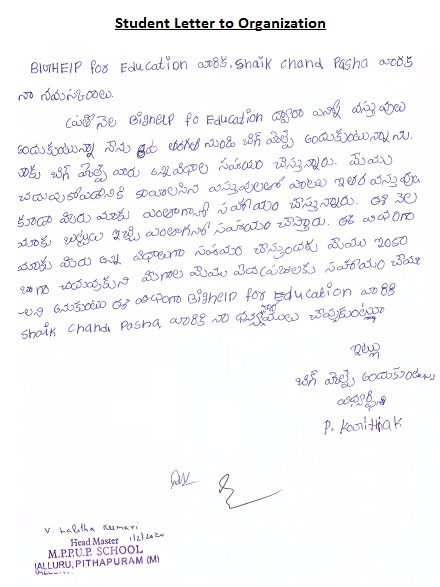 Student Letter to Organization
BIGHElP for Education వారికి, Shaik Chand Pasha వారికి
నా నమస్కారాలు.
ప్రతినెల BigHelp fo Education ద్వారా ఎన్నో వస్తువులు
అందుకుంటున్నా నేను తరగతి నుండి బిగ్ హెల్ప్ అందుకుంటున్నాను.
మాకు బిగ్ హెల్ప్ వారు అన్నివిధాల సహాయం చేస్తున్నారు. మేము
చదువుకోవడానికి కావాలసిన వస్తువులలో పాటు ఇతర వస్తువు
కూడా మీరు మాకు ఎంతాగానో సహాయం చేస్తున్నారు. ఈ నెల
మాకు ఇచ్చి ఎంతాగానో సహాయం చేస్తారు. ఈ విధంగా
మాకు మీరు అన్ని విధాలుగా సహాయం చేస్తున్నందుకు మేము ఇంకా
బాగా చదువుకుని మేము పేద ప్రజలకు సహాయం చేయా
-లని అనుకుంటు ఈ విధంగా BigHElP for Education వారికి
Shaik Chand Pasha వారికి నా చెప్పుకుంటూ
ఇట్లు
బిగ్ హెల్ప్ అందుకుంటున్న
విద్యార్థిని
P.
V. Lalitha Kumari
Head Master 1/2/2020
M.P.P.U.P. SCHOOL
MALLURU, PITHAPURAM (M)